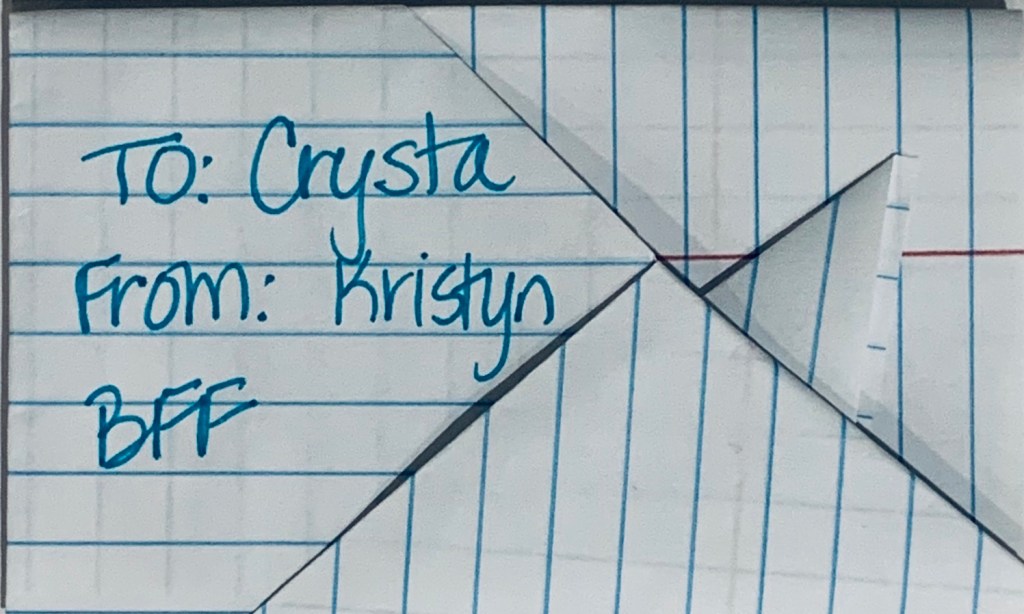 To: Crysta
From: Kristyn
BFF